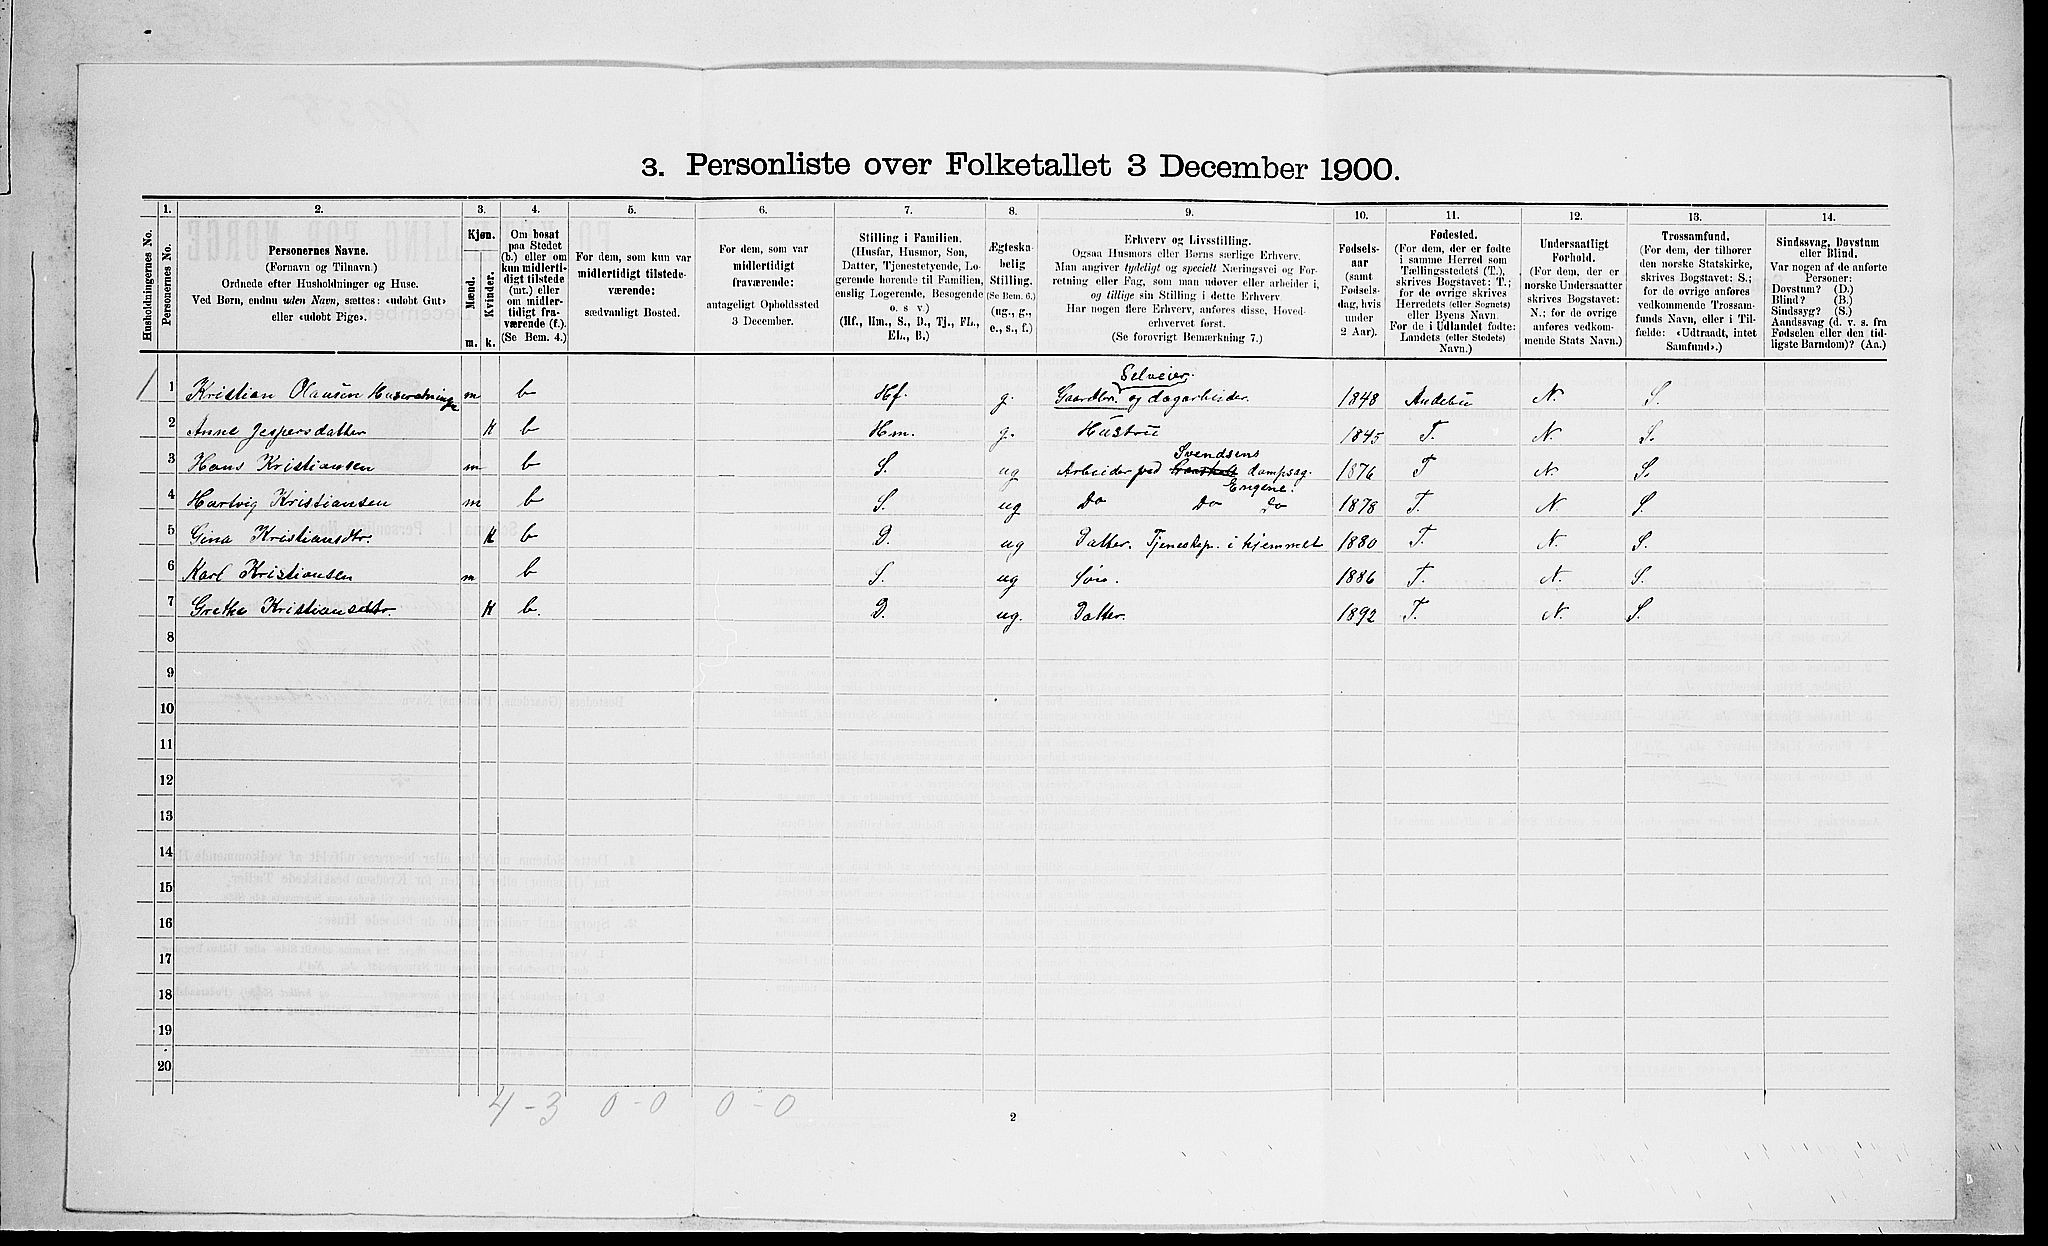 3. Personliste over Folketallet 3 December 1900.
1. 2. 3. 4. 5. 6. 7. 8. 9. 10. 11. 12. 13. 14.
Husholdningernes No.
Personernes No.
Personernes Navne.
(Fornavn og Tilnavn.)
Ordnede efter Husholdninger og Huse.
Ved Børn, endnu uden Navn, sættes: «udøbt Gut»
eller «udøbt Pige».
Kjøn.
Mænd.
Kvinder.
m. k.
Om bosat
paa Stedet
(b.) eller om
kun midlerti-
digt tilstede
(mt.) eller
om midler-
tidigt fra-
værende (f.).
(Se Bem. 4.)
For dem, som kun var
midlertidigt tilstede-
værende:
sædvanligt Bosted.
For dem, som var
midlertidigt
fraværende:
antageligt Opholdssted
3 December.
Stilling i Familien.
(Husfar, Husmor, Søn,
Datter, Tjenestetyende, Lo-
gerende hørende til Familien,
enslig Logerende, Besøgende
o. s. v.)
(Hf., Hm., S., D., Tj., FL.,
EL., B.)
Ægteska-
belig
Stilling.
(Se Bem. 6.)
(ug., g.,
e., s., f.)
Erhverv og Livsstilling.
Ogsaa Husmors eller Børns særlige Erhverv.
Man angiver tydeligt og specielt Næringsvei og For-
retning eller Fag, som man udøver eller arbeider i,
og tillige sin Stilling i dette Erhverv
Har nogen flere Erhverv, anføres disse, Hoved-
erhvervet først.
(Se forøvrigt Bemærkning 7.)
Fødsels-
aar
(samt
Fødsels-
dag, hvis
under
2 Aar).
Fødested.
(For dem, der er fødte
i samme Herred som
Tællingsstedets (T.),
skrives Bogstavet: T.;
for de øvrige skrives
Herredets (eller Sognets)
eller Byens Navn.
For de i Udlandet fødte:
Landets (eller Stedets)
Navn.)
Undersaatligt
Forhold.
(For dem, der er
norske Undersaatter
skrives Bogstavet:
N.; for de øvrige
anføres vedkom-
mende Stats Navn.)
Trossamfund.
(For dem, der tilhører
den norske Statskirke,
skrives Bogstavet: S.;
for de øvrige anføres
vedkommende Trossam-
funds Navn, eller i Til-
fælde: «Udtraadt, intet
Samfund».)
Sindssvag, Døvstum
eller Blind.
Var nogen af de anførte
Personer:
Døvstum? (D.)
Blind? (B.)
Sindssyg? (S.)
Aandssvag (d. v. s. fra
Fødselen eller den tid-
ligste Barndom)? (Aa.)
Selveier.
1 Kristian Olausen m b Hf. g. Gaardbr. og dagarbeider. 1848 Andebu N. S.
2 Anne Jespersdatter k b Hm. g. Hustru 1845 T. N. S.
Svendsens
3 Hans Kristiansen m b S. ug Arbeider ved dampsag. 1876 T N. S.
Engene.
4 Hartvig Kristiansen m b S. ug Do Do Do 1878 T. N S.
5 Gina Kristiansdtr. k b D. ug Datter. Tjenestep. i hjemmet 1880 T. N. S.
6 Karl Kristiansen m b S. ug Søn. 1886 T. N. S.
7 Grethe Kristiansdtr. k b. D. ug. Datter. 1892 T. N. S.
8
9
10
11
12
13
14
15
16
17
18
19
20
4 - 3 0 - 0 0 - 0
2